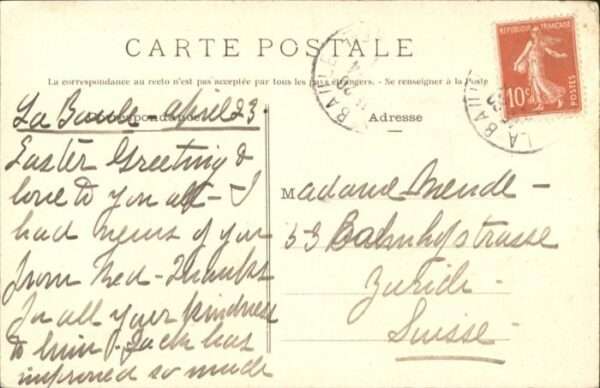 CARTE POSTALE
La correspondance au recto n'est pas acceptée par tous les pays étrangers. - Se renseigner à la Poste
RÉPUBLIQUE FRANÇAISE
10c
POSTES
LA BAULE
Correspondance
Adresse
La Baule - April 23.
Easter Greeting &
love to you all - I
had news of you
from Ned - Thanks
for all your kindness
to him. Jack has
improved so much
Madame Mende -
53 Bahnhofstrasse
Zurich -
Suisse -